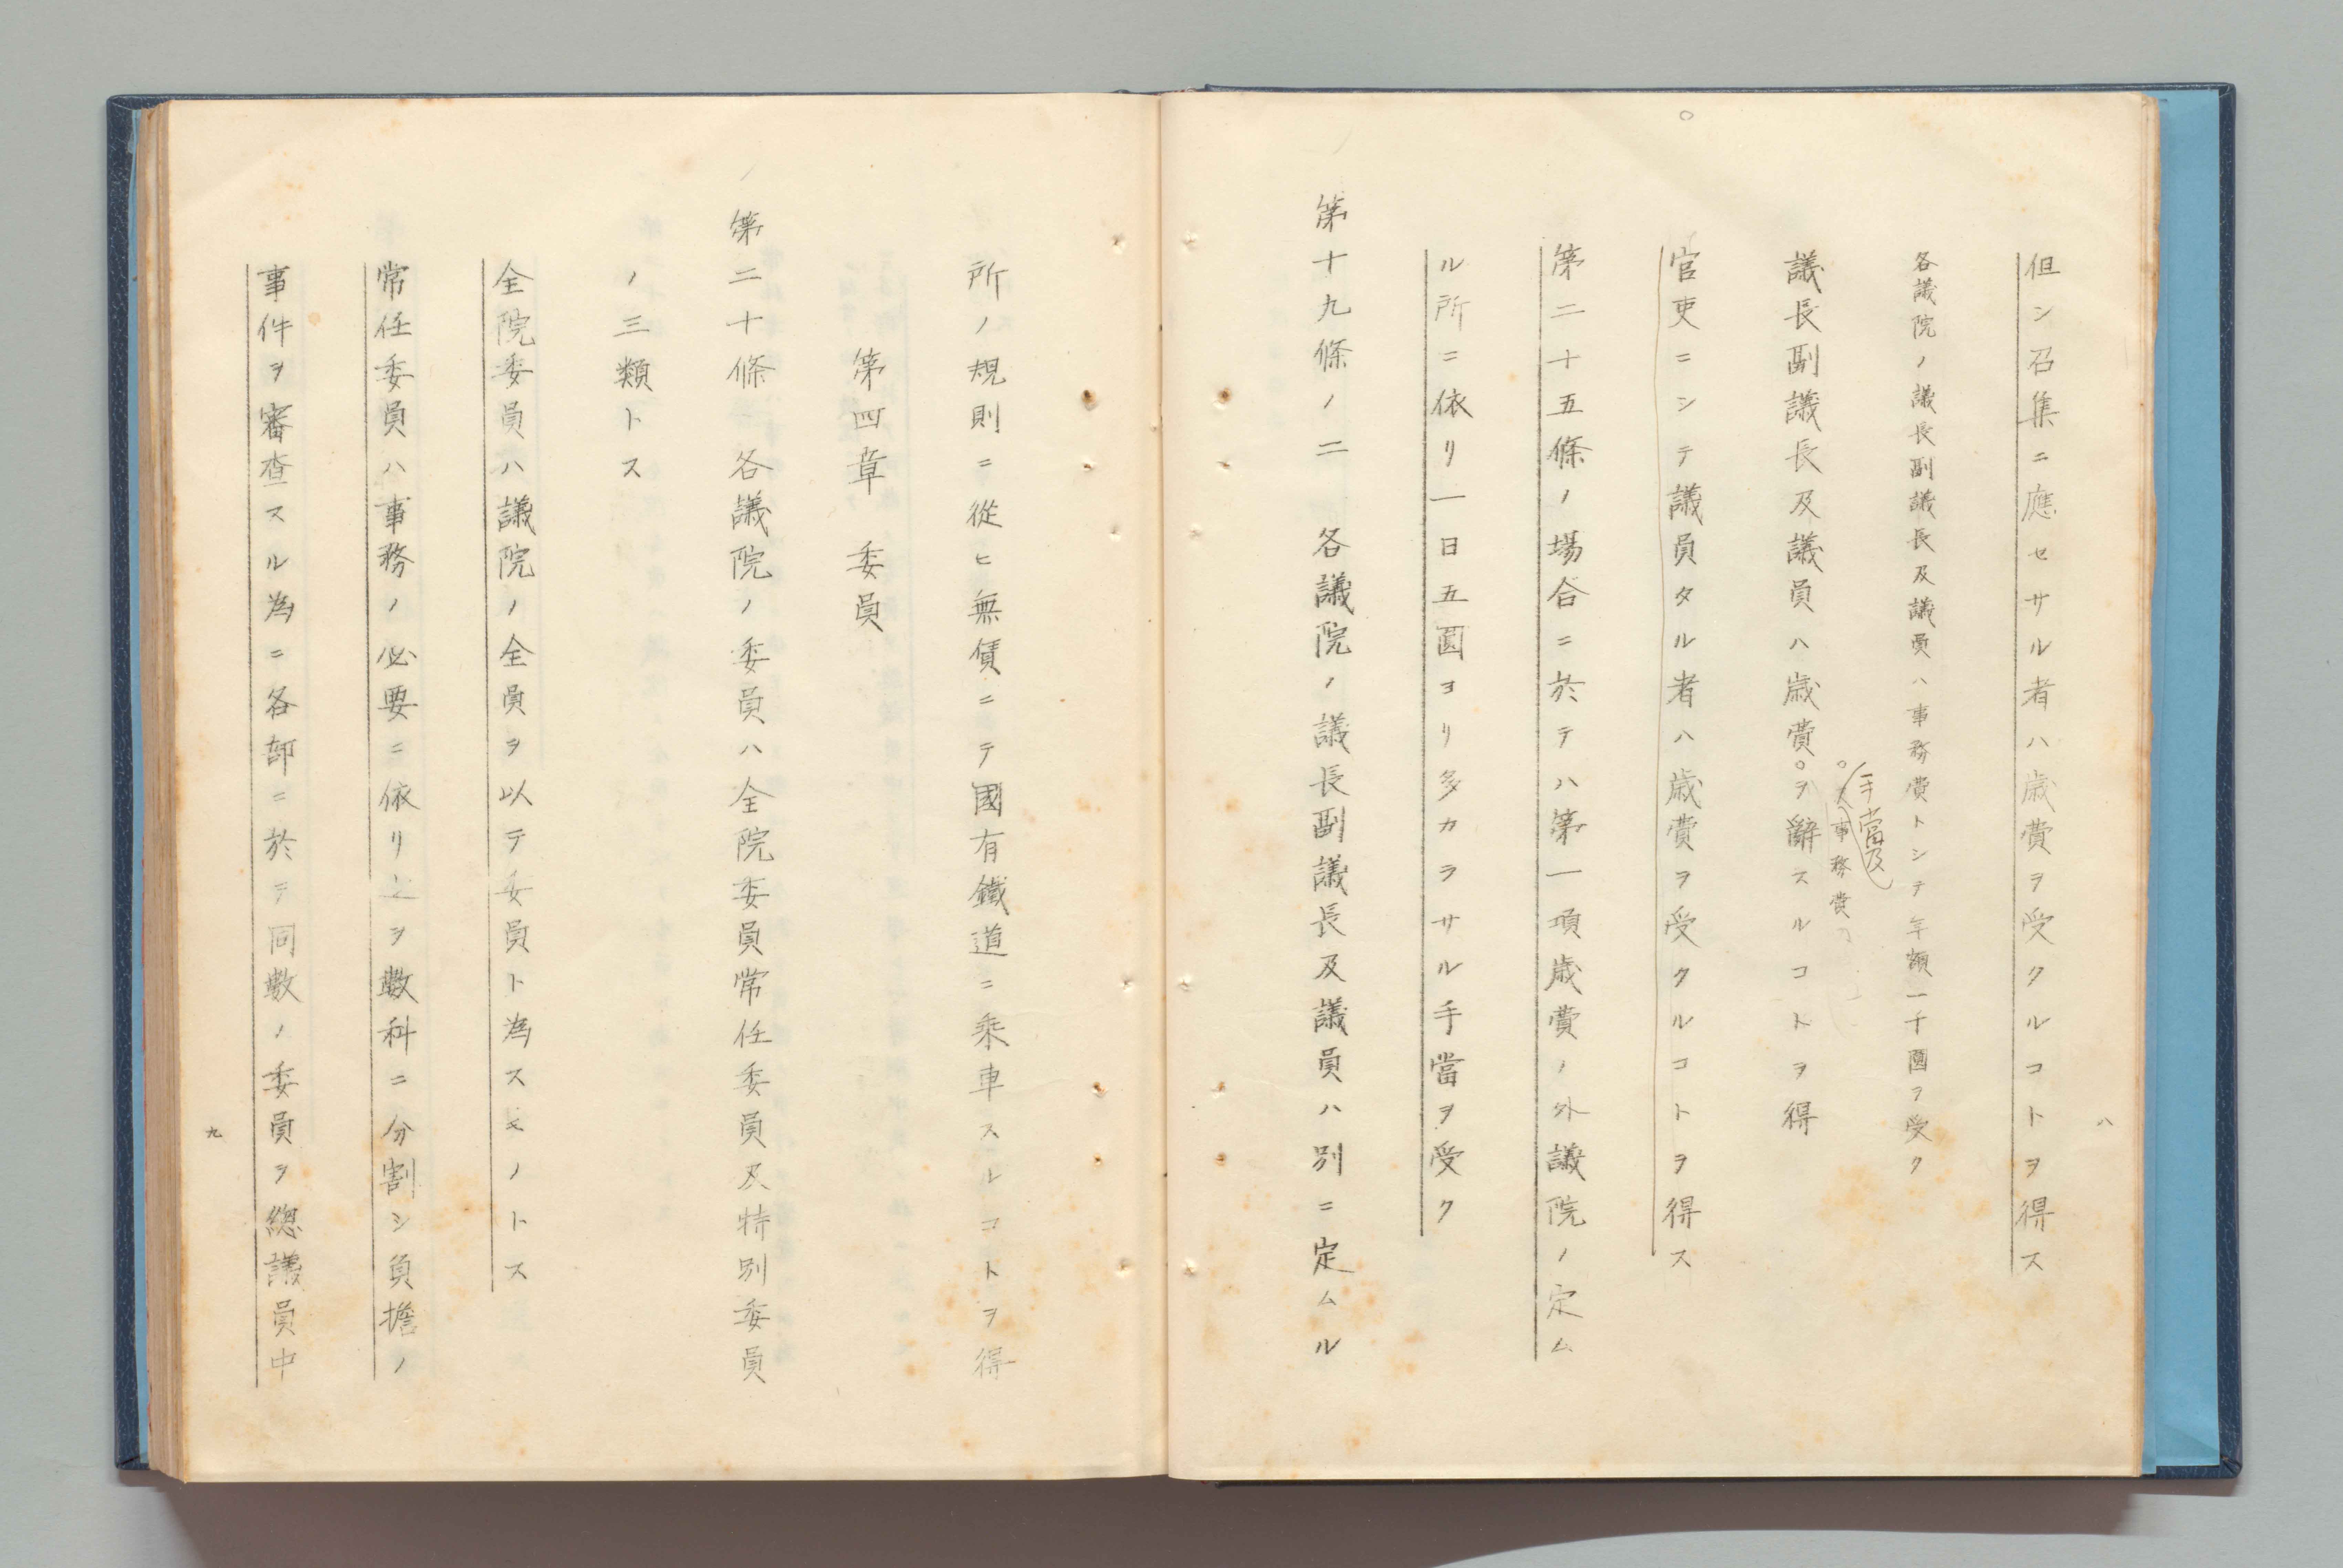 八
但シ召集ニ應セサル者ハ歳費ヲ受クルコトヲ得ス
各議院ノ議長副議長及議員ハ事務費トシテ年額一千圓ヲ受ク
手當及
事務費
議長副議長及議員ハ歳費。ヲ辭スルコトヲ得
官吏ニシテ議員タル者ハ歳費ヲ受クルコトヲ得ス
第二十五條ノ場合ニ於テハ第一項歳費ノ外議院ノ定ム
ル所ニ依リ一日五圓ヨリ多カラサル手當ヲ受ク
第十九條ノ二 各議院ノ議長副議長及議員ハ別ニ定ムル
所ノ規則ニ從ヒ無賃ニテ國有鐵道ニ乘車スルコトヲ得
第四章 委員
第二十條 各議院ノ委員ハ全院委員常任委員及特別委員
ノ三類トス
全院委員ハ議院ノ全員ヲ以テ委員ト為スモノトス
常任委員ハ事務ノ必要ニ依リ之ヲ數科ニ分割シ負擔ノ
事件ヲ審查スル為ニ各部ニ於テ同數ノ委員ヲ總議員中
九